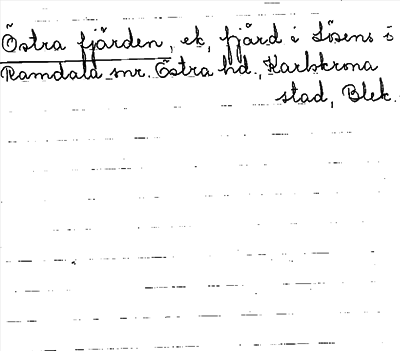 Östra fjärden, ek, fjärd i Lösens o
Ramdala snr. Östra hd., Karlskrona
stad, Blek.